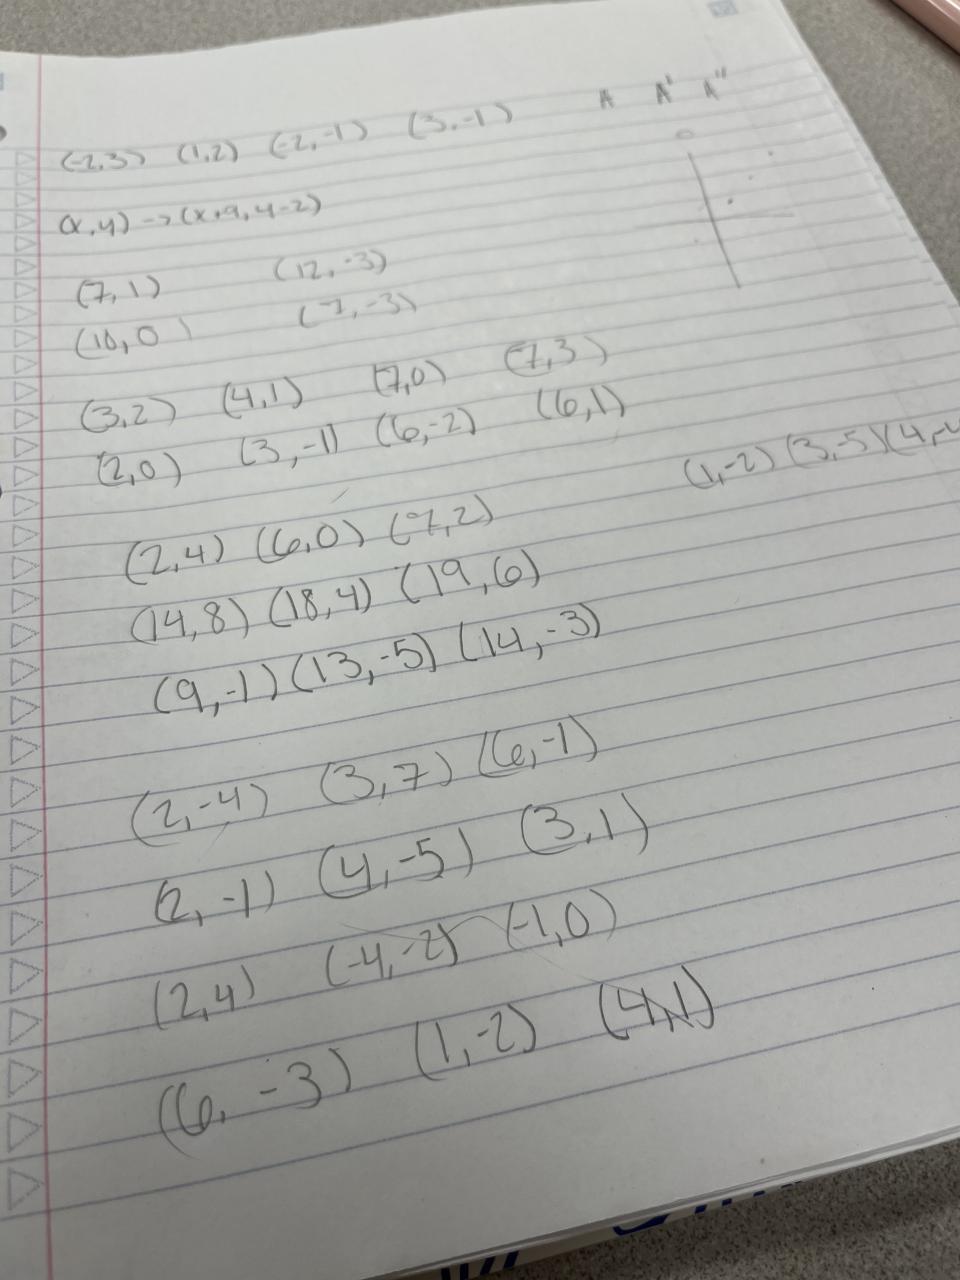 A A' A"
(-2,3) (1,2) (-2,-1) (3,-1)
(x,y) → (x+9, y-2)
(7,1) (12,-3)
(10,0) (7,-3)
(3,2) (4,1) (7,0) (7,3)
(2,0) (3,-1) (6,-2) (6,1)
(1,-2) (3,-5) (4,-4
(2,4) (6,0) (7,2)
(14,8) (18,4) (19,6)
(9,-1) (13,-5) (14,-3)
(2,-4) (3,7) (6,-1)
(2,-1) (4,-5) (3,1)
(2,4) (-4,-2) (-1,0)
(6,-3) (1,-2) (4,1)